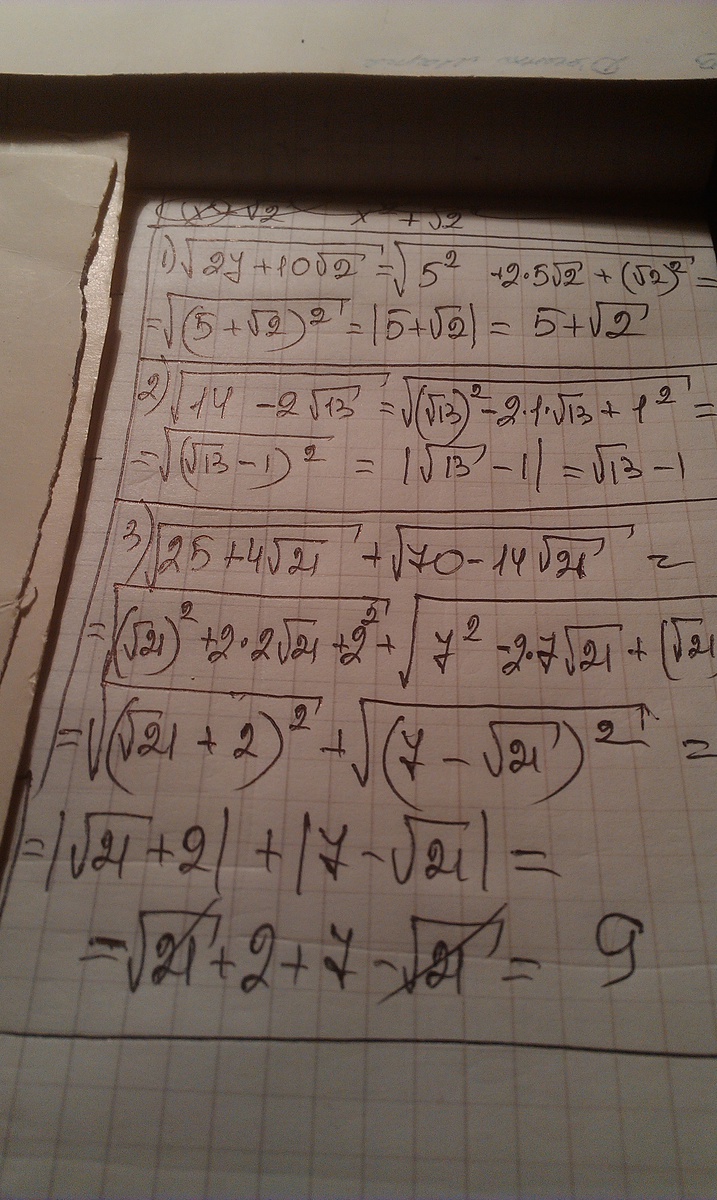 x² + √2
1) √(27+10√2) = √(5² +2·5√2 + (√2)²) =
= √((5+√2)²) = |5+√2| = 5+√2
2) √(14 - 2√13) = √((√13)² - 2·1·√13 + 1²) =
= √((√13 - 1)²) = |√13 - 1| = √13 - 1
3) √(25+4√21) + √(70-14√21) =
= √((√21)² +2·2√21 +2²) + √(7² -2·7√21 + (√21
= √((√21 + 2)²) + √((7 - √21)²) =
= |√21 + 2| + |7 - √21| =
= √21 + 2 + 7 - √21 = 9